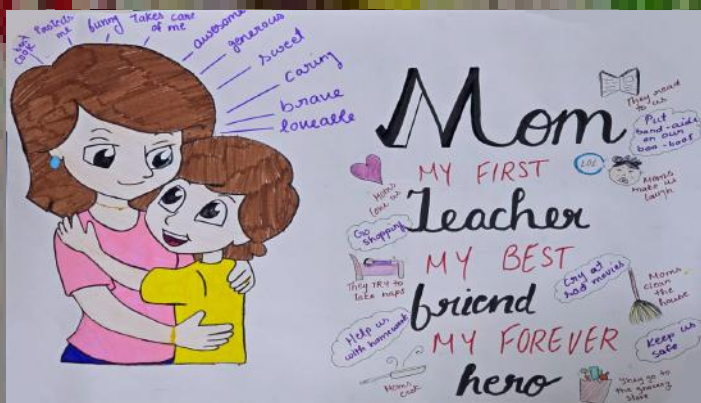 best
cook
Protects
me
funny
takes care
of me
awesome
generous
sweet
caring
brave
loveable
Mom
MY FIRST
Teacher
MY BEST
friend
MY FOREVER
hero
They read
to us
Put
band-aids
on our
boo-boos
LOL
Moms
make us
laugh
Moms
love us
Go
shopping
They TRY to
take naps
Cry at
sad movies
Moms
clean
the
house
Help us
with homework
Keep us
safe
Moms
cook
They go to
the grocery
store